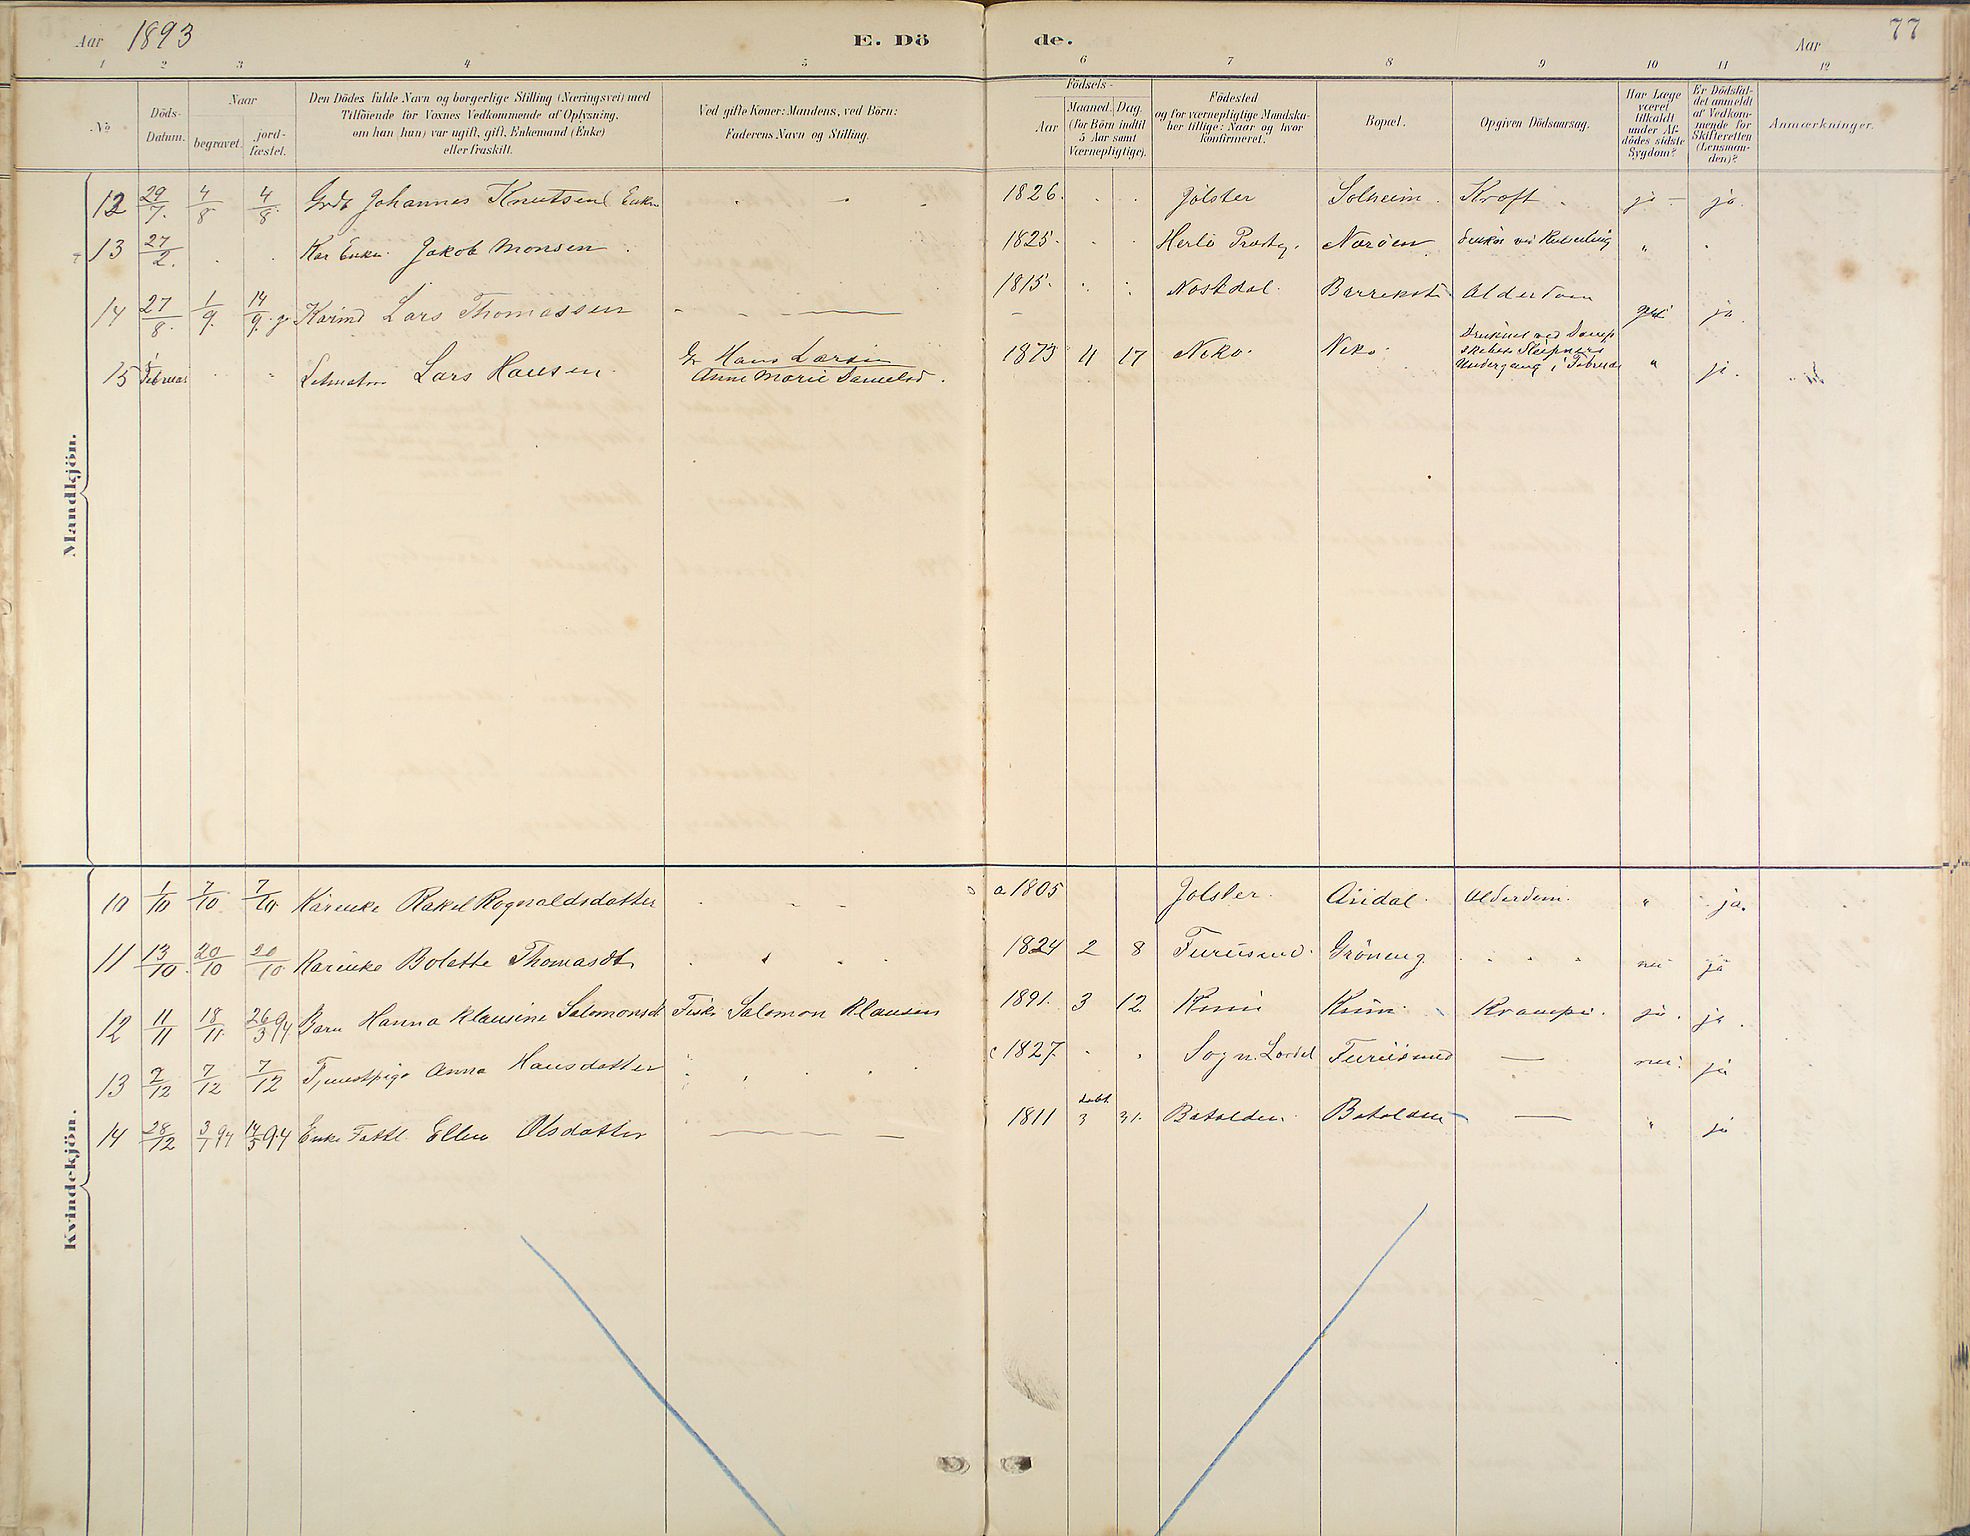 Aar 1893 E. Dö de. Aar 77
1 2 3 4 5 6 7 8 9 10 11 12
No
Döds-
Datum.
Naar
begravet. jord-
fæstet.
Den Dödes fulde Navn og borgerlige Stilling (Næringsvei) med
Tilföiende for Voxnes Vedkommende af Oplysning,
om han (hun) var ugift, gift, Enkemand (Enke)
eller fraskilt.
Ved gifte Koner: Mandens, ved Börn:
Faderens Navn og Stilling.
Födsels-
Aar
Maaned. Dag.
(for Börn indtil
5 Aar samt
Værnepligtige).
Födested
og for værnepligtige Mandska-
ber tillige: Naar og hvor
konfirmeret.
Bopæl.
Opgiven Dödsaarsag.
Har Læge
været
tilkaldt
under Af-
dödes sidste
Sygdom?
Er Dödsfal-
det anmeldt
af Vedkom-
mende for
Skifteretten
(Lensman-
den)?
Anmærkninger.
Mandkjön.
12 29/7. 4/8 4/8. Johannes Knutsen 1826. Jölster Solheim. Kræft. ja - ja.
13 27/2. Kar Enkm. Jakob Monsen. 1825. Herlö Præstg. Naröen. "
14 27/8. 1/9. 14/9. g. Karmd Lars Thomassen 1815. Nøstdal. Barrekst. Alderdom ja.
15 Februar Lars Hansen. Hans Larsen
Anne Marie Danielsd. 1873 4 17 Neko. Neko. Druknet ved Damp-
skibet Sleipners
Undergang i Februar " ja.
Kvindekjön.
10 1/10 7/10 7/10 Kårenke Rakel Rognaldsdatter a 1805 Jolster. Årdal. Alderdom. " ja.
11 13/10. 20/10 20/10 Kårenke Bolette Thomasdt. 1824 2 8 Furusund. Gröneng. nei ja
12 11/11 18/11 26/3 94 Barn Hanna Klausine Salomonsdt Fisk. Salomon Klausen 1891. 3 12 Kinn Kinn. Krampe. ja. ja.
13 2/12 7/12 7/12 Tjenestpige Anna Hansdatter c 1827. Sogn. Furusund — nei. ja
14 28/12 3/1 94 14/3 94 Enke Fattl. Ellen Olsdatter 1811 döbt 3 31. Batalden. Batalden — " ja